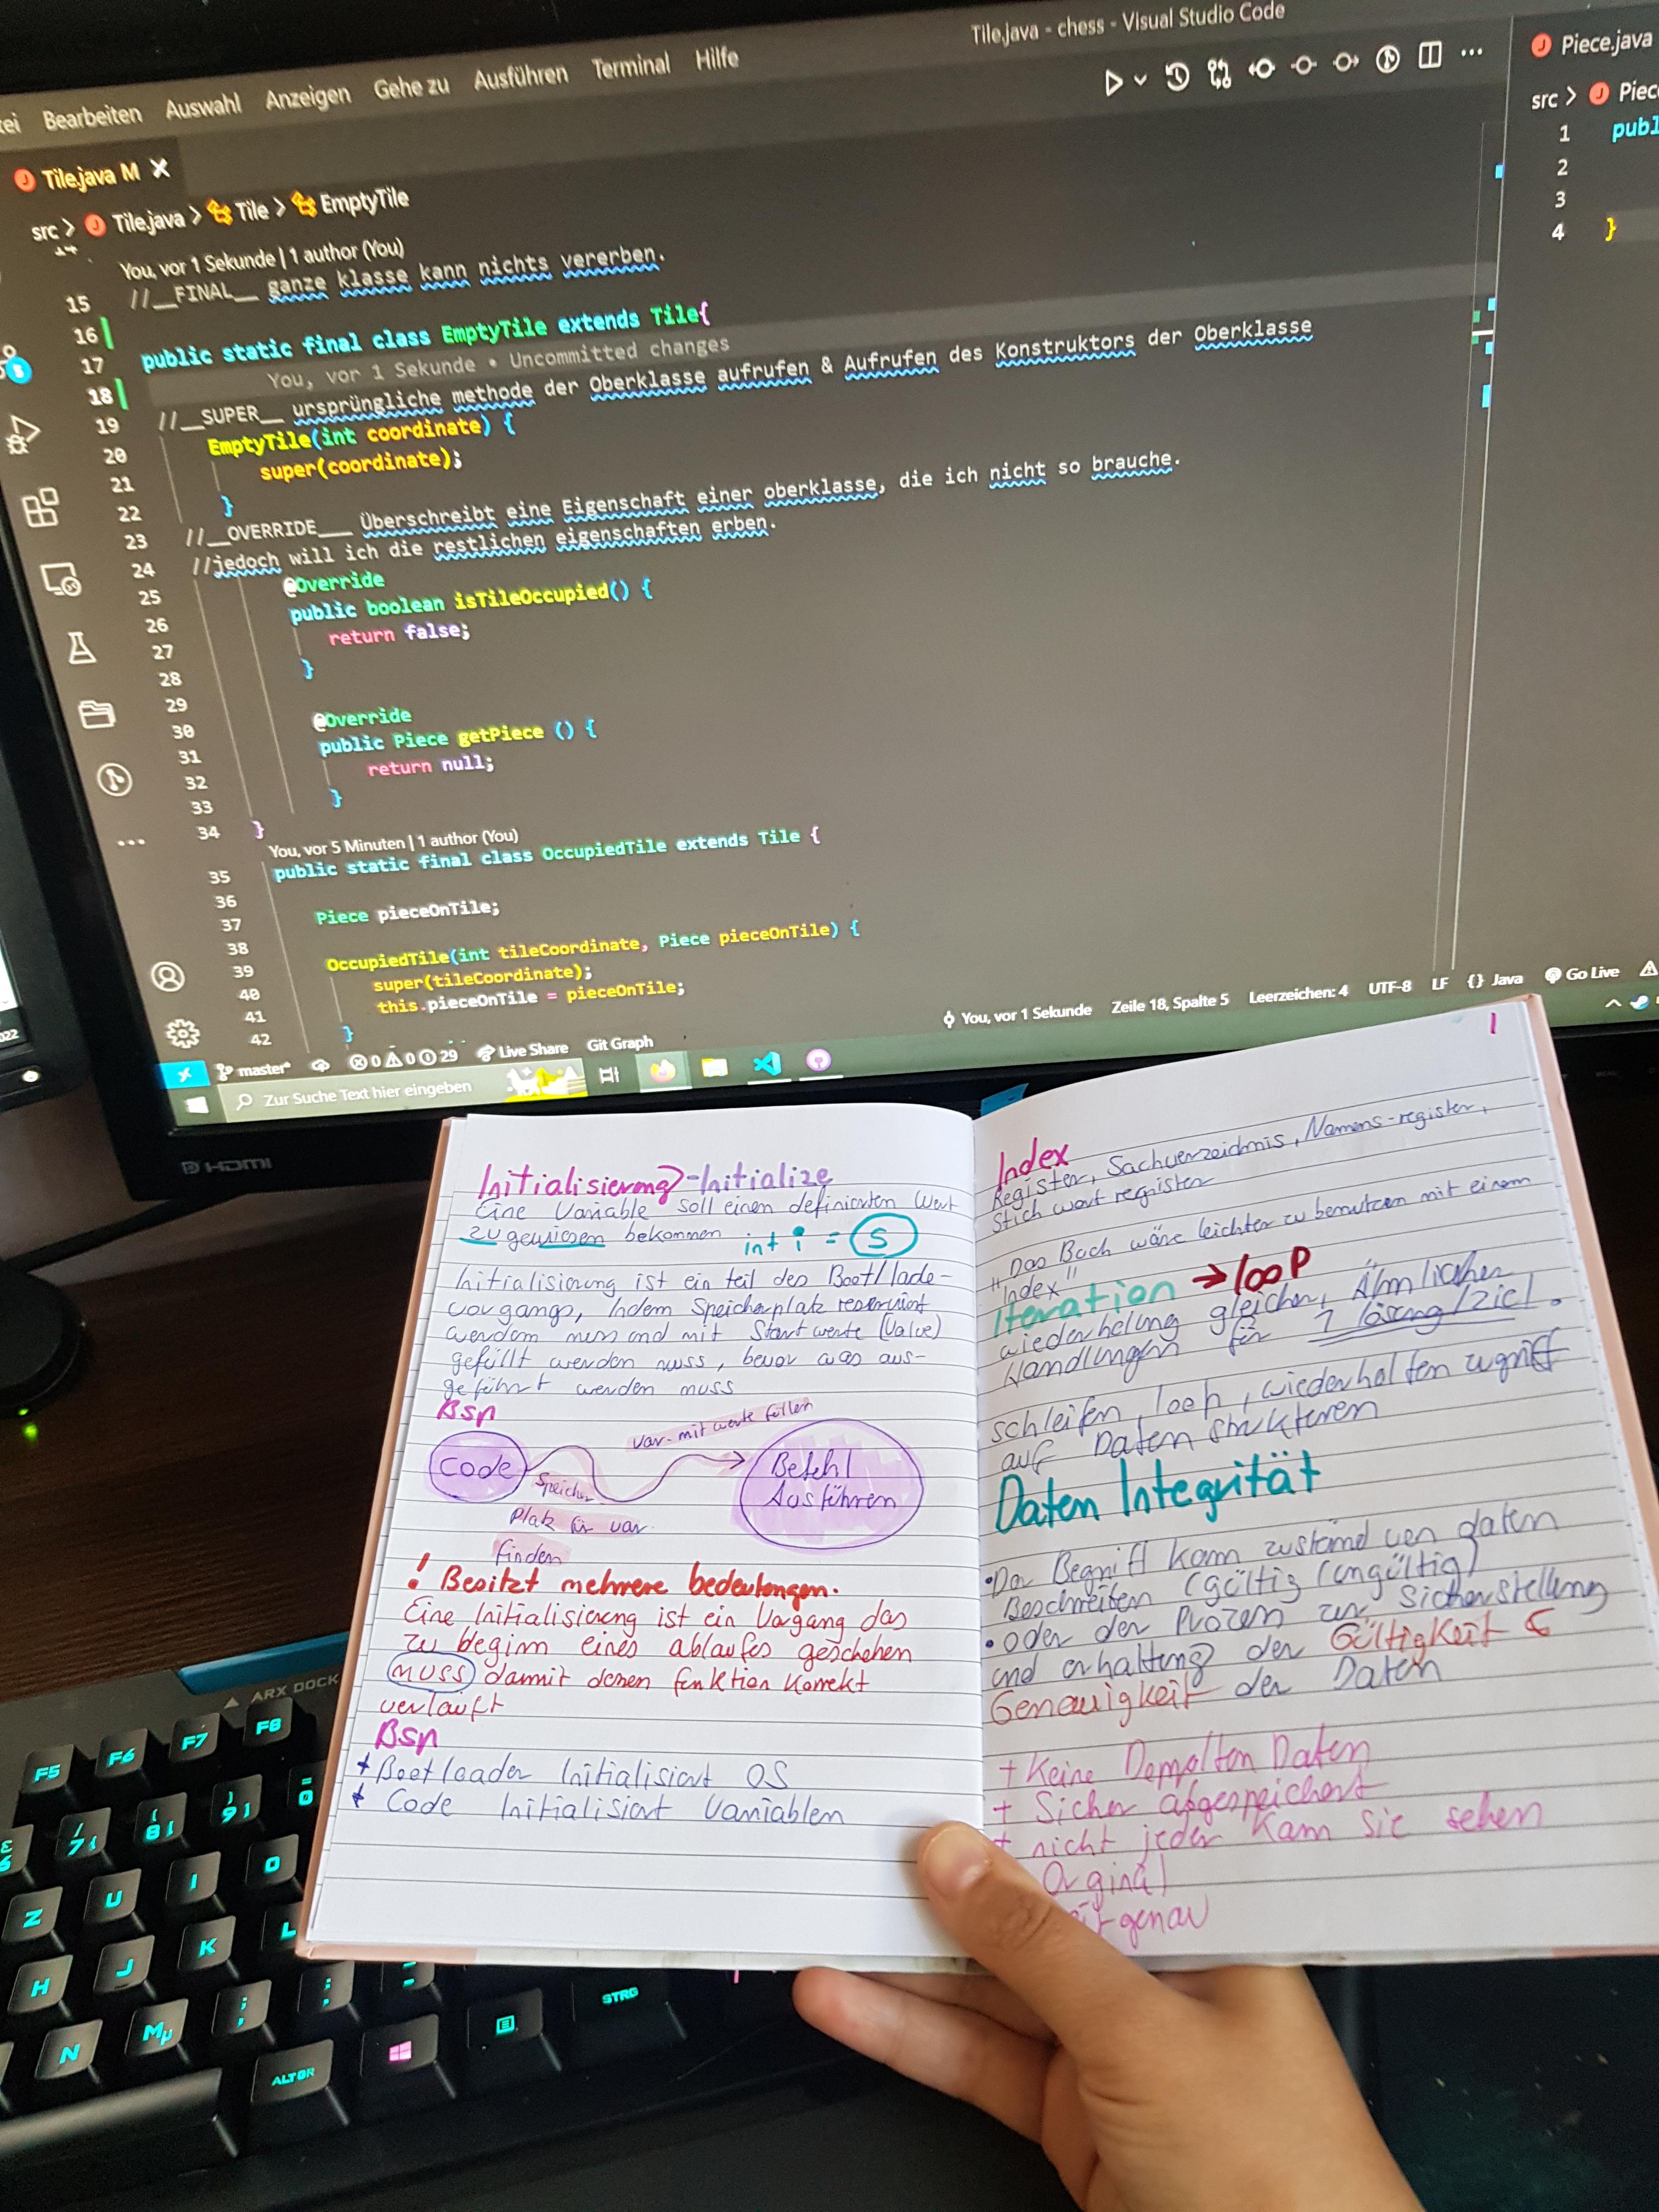 Tile.java - chess - Visual Studio Code
Bearbeiten Auswahl Anzeigen Gehe zu Ausführen Terminal Hilfe
Tile.java M
src > Tile.java > Tile > EmptyTile
You, vor 1 Sekunde | 1 author (You)
15 //__FINAL__ ganze klasse kann nichts vererben.
16
17 public static final class EmptyTile extends Tile{
18 You, vor 1 Sekunde • Uncommitted changes
19 //__SUPER__ ursprüngliche methode der Oberklasse aufrufen & Aufrufen des Konstruktors der Oberklasse
20 EmptyTile(int coordinate) {
21 super(coordinate);
22 }
23 //__OVERRIDE___ Überschreibt eine Eigenschaft einer oberklasse, die ich nicht so brauche.
24 //jedoch will ich die restlichen eigenschaften erben.
25 @Override
26 public boolean isTileOccupied() {
27 return false;
28 }
29
30 @Override
31 public Piece getPiece () {
32 return null;
33 }
34 }
You, vor 5 Minuten | 1 author (You)
35 public static final class OccupiedTile extends Tile {
36
37 Piece pieceOnTile;
38
39 OccupiedTile(int tileCoordinate, Piece pieceOnTile) {
40 super(tileCoordinate);
41 this.pieceOnTile = pieceOnTile;
42 }
Piece.java
src > Piec
1 publ
2
3
4 }
master* 0 0 29 Live Share Git Graph
You, vor 1 Sekunde Zeile 18, Spalte 5 Leerzeichen: 4 UTF-8 LF {} Java Go Live
Zur Suche Text hier eingeben
022
HDMI
Initialisierung-Initialize
Eine Variable soll einen definierten Wert
zugewiesen bekommen int i = 5
Initialisierung ist ein teil des Boot/lade-
vorgangs, Indem Speicherplatz reserviert
werden muss und mit Startwerte (Value)
gefüllt werden muss, bevor was aus-
geführt werden muss
Bsp
Code
Speicher
Platz für var
finden
var. mit werte füllen
Befehl
Ausführen
! Besitzt mehrere bedeutungen.
Eine Initialisierung ist ein Vorgang das
zu beginn eines ablaufes geschehen
muss damit deren funktion Korrekt
verläuft
Bsp
+ Bootloader Initialisiert OS
+ Code Initialisiert Variablen
1
Index
Register, Sachverzeichnis, Namens-register,
Stich wort register
"Das Buch wäre leichter zu benutzen mit einem
"Index"
Iteration → loop
wiederholung gleicher, Ähnlicher
Handlungen für 1 lösung/Ziel.
schleifen, loop, wiederholten zugriff
auf Daten strukturen
Daten Integrität
• Der Begriff kann zustand von daten
Beschreiben (gültig/ungültig)
• oder der Prozess zur Sicherstellung
und erhaltung der Gültigkeit &
Genauigkeit der Daten
+ Keine Doppelten Daten
+ Sicher abgespeichert
+ nicht jeder kann sie sehen
Orginal
genau
ARX DOCK
F5 F6 F7 F8
7 8 9 0
Z U I O
H J K L
N M µ ; :
ALT GR STRG